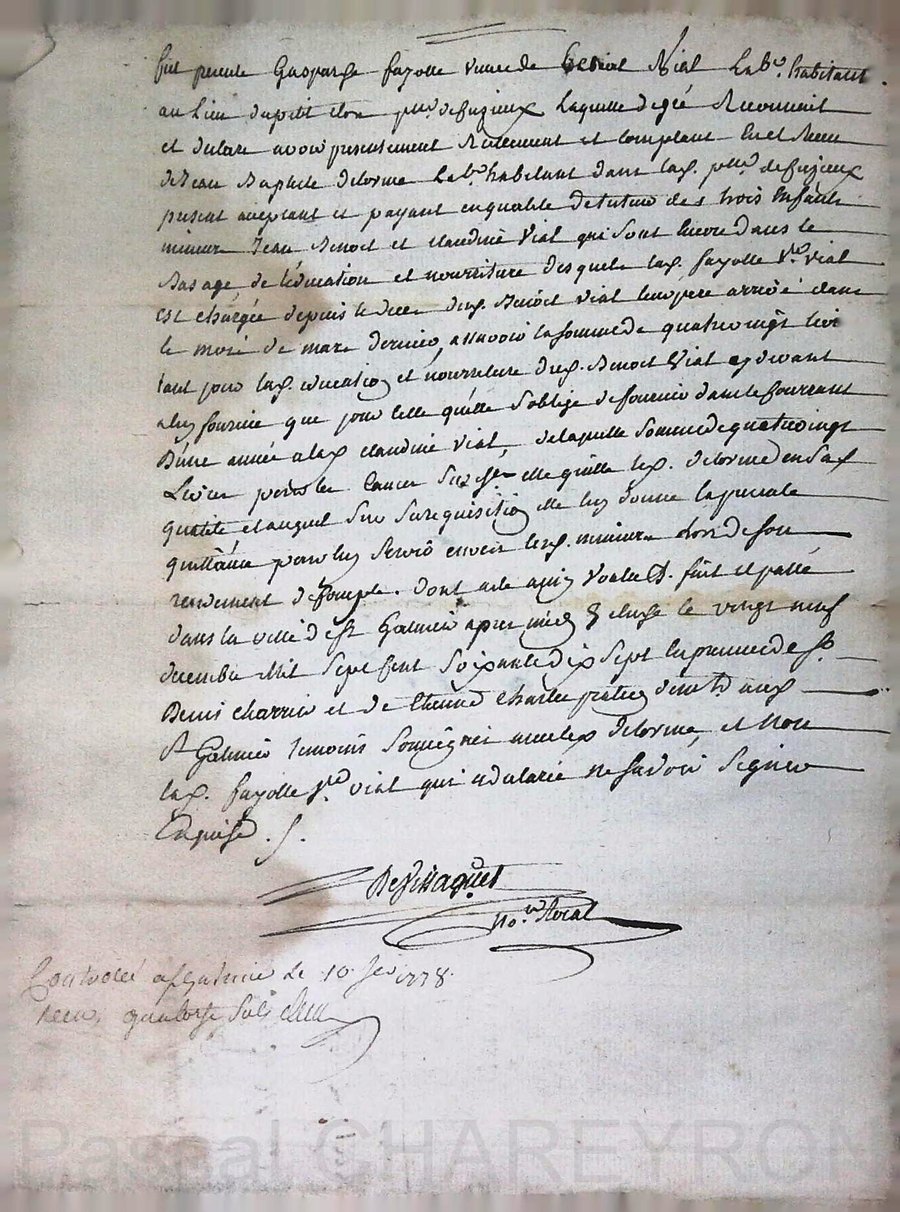 fut presente Gasparde fayolle veuve de Benoit Vial Lab.r habitant
au Lieu du petit       p.sse de fuzieux Laquelle de gré Reconnoit
et declare avoir presentement Reellement et Comptant      Receu
de Jean Baptiste delorme Lab.r habitant dans lad. p.sse de fuzieux
present acceptant et payant en qualité de tuteur des trois Enfants
mineurs Jean Benoit et claudine Vial qui sont Encore dans le
Bas age de l'éducation et nourriture desquels lad. fayolle V.ve Vial
est chargée depuis le deces dud. Benoit Vial leur pere arrivé dans
le mois de mars dernier, assavoir la somme de quatre vingt livres
tant pour lad. education et nourriture dud. Benoit Vial cy devant
a luy fournie que pour celle quelle s'oblige de fournir dans le Courrant
D'une année a lad. claudine Vial, de laquelle somme de quatre vingt
Livres pour les Causes Susd.               led. delorme en sad.
qualité et auquel sur sa requisition elle luy donne la presente
quittance pour luy servir envers lesd. mineurs lors de son
rendement de Compte. dont acte      Voulu      fait et passé
dans la ville de St Galmier apres midy       le vingt neuf
decembre Mil Sept Cent Soixante dix Sept En presence de Sr
Denis charrier et de Etienne Charles praticiens dem.ts aud.
St Galmier temoins Soussignés avec led. delorme, et Non
lad. fayolle V.ve Vial qui a declaré ne savoir Signer
Enquise.
De Vissaguet
No.re Royal
Controllé a St Galmier Le 10 Jer 1778.
Receu quatorze Sols
Pascal CHAREYRON